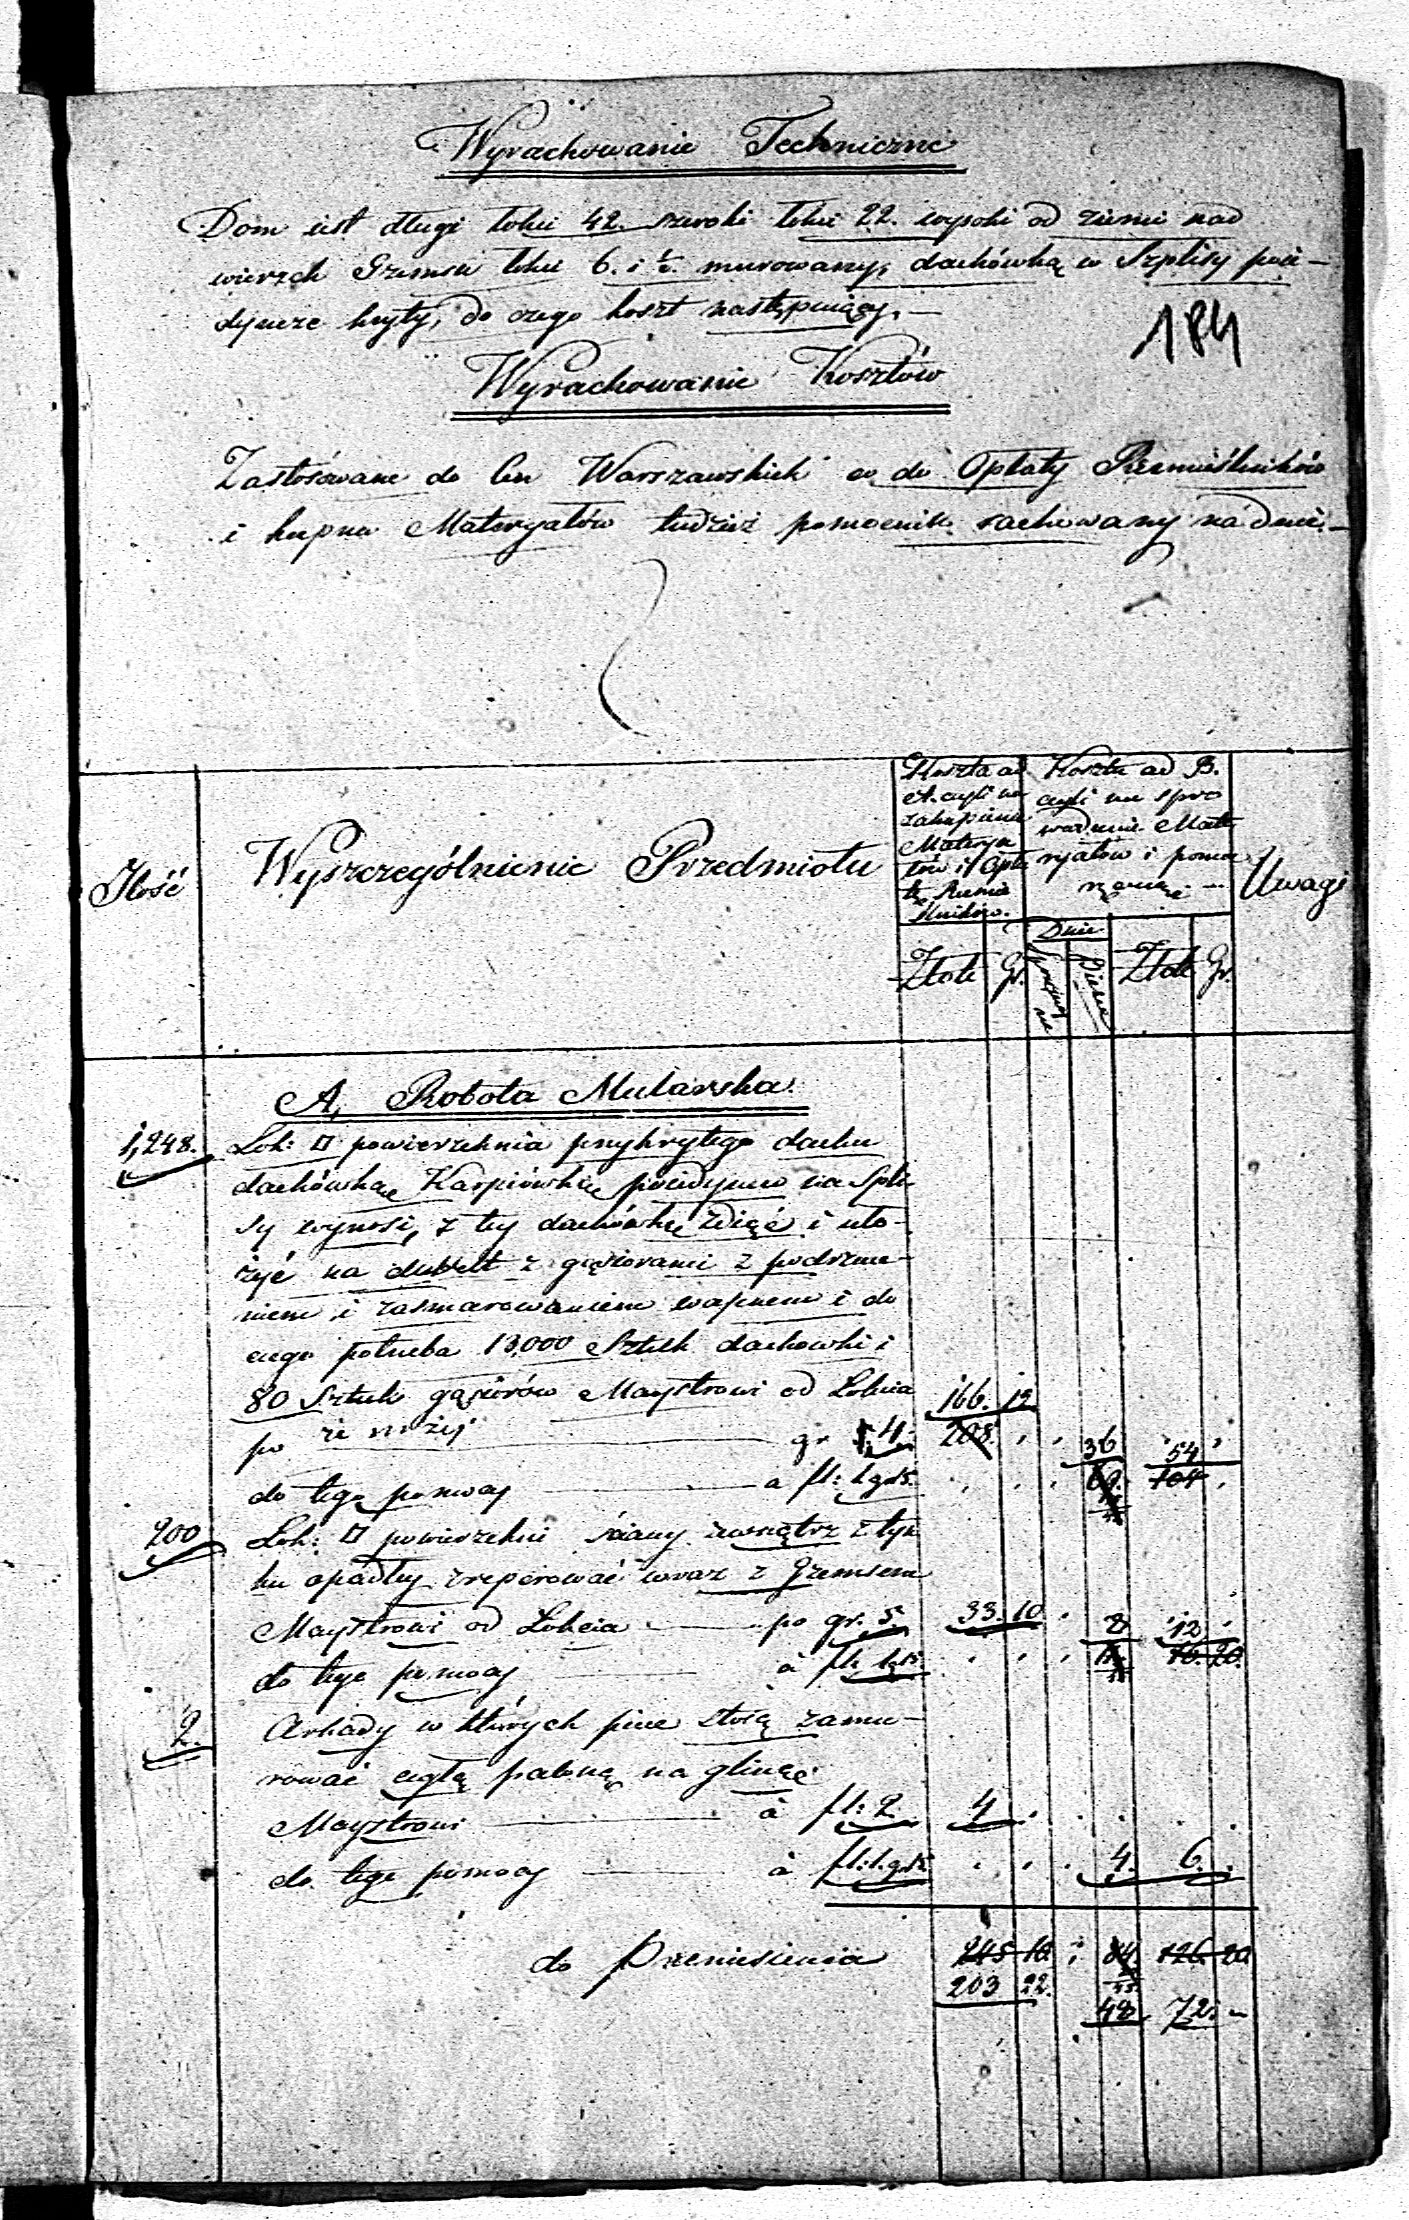 Wyrachowanie Techniczne
Dom iest długi łokci 42. szeroki łokci 22. wysoki od ziemi nad
wierzch Gzemsu łokci 6. i ½. murowany, dachówką w Szplisy poie-
dyncze kryty, do czego koszt następuiący.—
184
Wyrachowanie Kosztów
Zastósowane do Cen Warszawskich co do Opłaty Rzemieślników
i kupna Materyałów tudzież pomocnik rachowany na dnie.—
Ilość
Wyszczególnienie Przedmiotu
Koszta ad
A. czyli na
zakupienie
Materya
łów i Opła
tę Rzemie
ślników.
Koszta ad B.
czyli na spro
wadzenie Mate
ryałów i pomoc
ręczną. —
Uwagi
Złote
Gr.
Dnie
Ciągłe
Piesze
Złote
Gr.
A, Robota Mularska.
1,248. Łok: □ powierzchnia przykrytego dachu
dachówką Karpiówką poiedynczo na Szpli
sy wynosi, z tey dachówkę zdiąć i uło-
żyć na dubelt z gąsiorami z podrzuce-
niem i zasmarowaniem wapnem i do
czego potrzeba 13,000 Sztuk dachowki i
80 Sztuk gąsiorów Maystrowi od Łokcia 166. 12
po że niżéy — gr 5, 4. 208. 36 54
do tego pomocy — a fl: 1 gr 15. 104
200 Łok: □ powierzchni ściany zewnątrz z tyn
ku opadłey zreperować wraz z Gzemsem
Maystrowi od Łokcia — po gr. 5. 33. 10 8 12
do tego pomocy — à fl. 1 gr 15 16. 20.
2. Arkady w których piece stoią zamu-
rować cegłą paloną na glinę
Maystrowi — à fl: 2. 4
do tego pomocy — à fl: 1. gr 15 4. 6.
do Przeniesienia 245 10. 84. 126. 20
203 22.
48 72. —